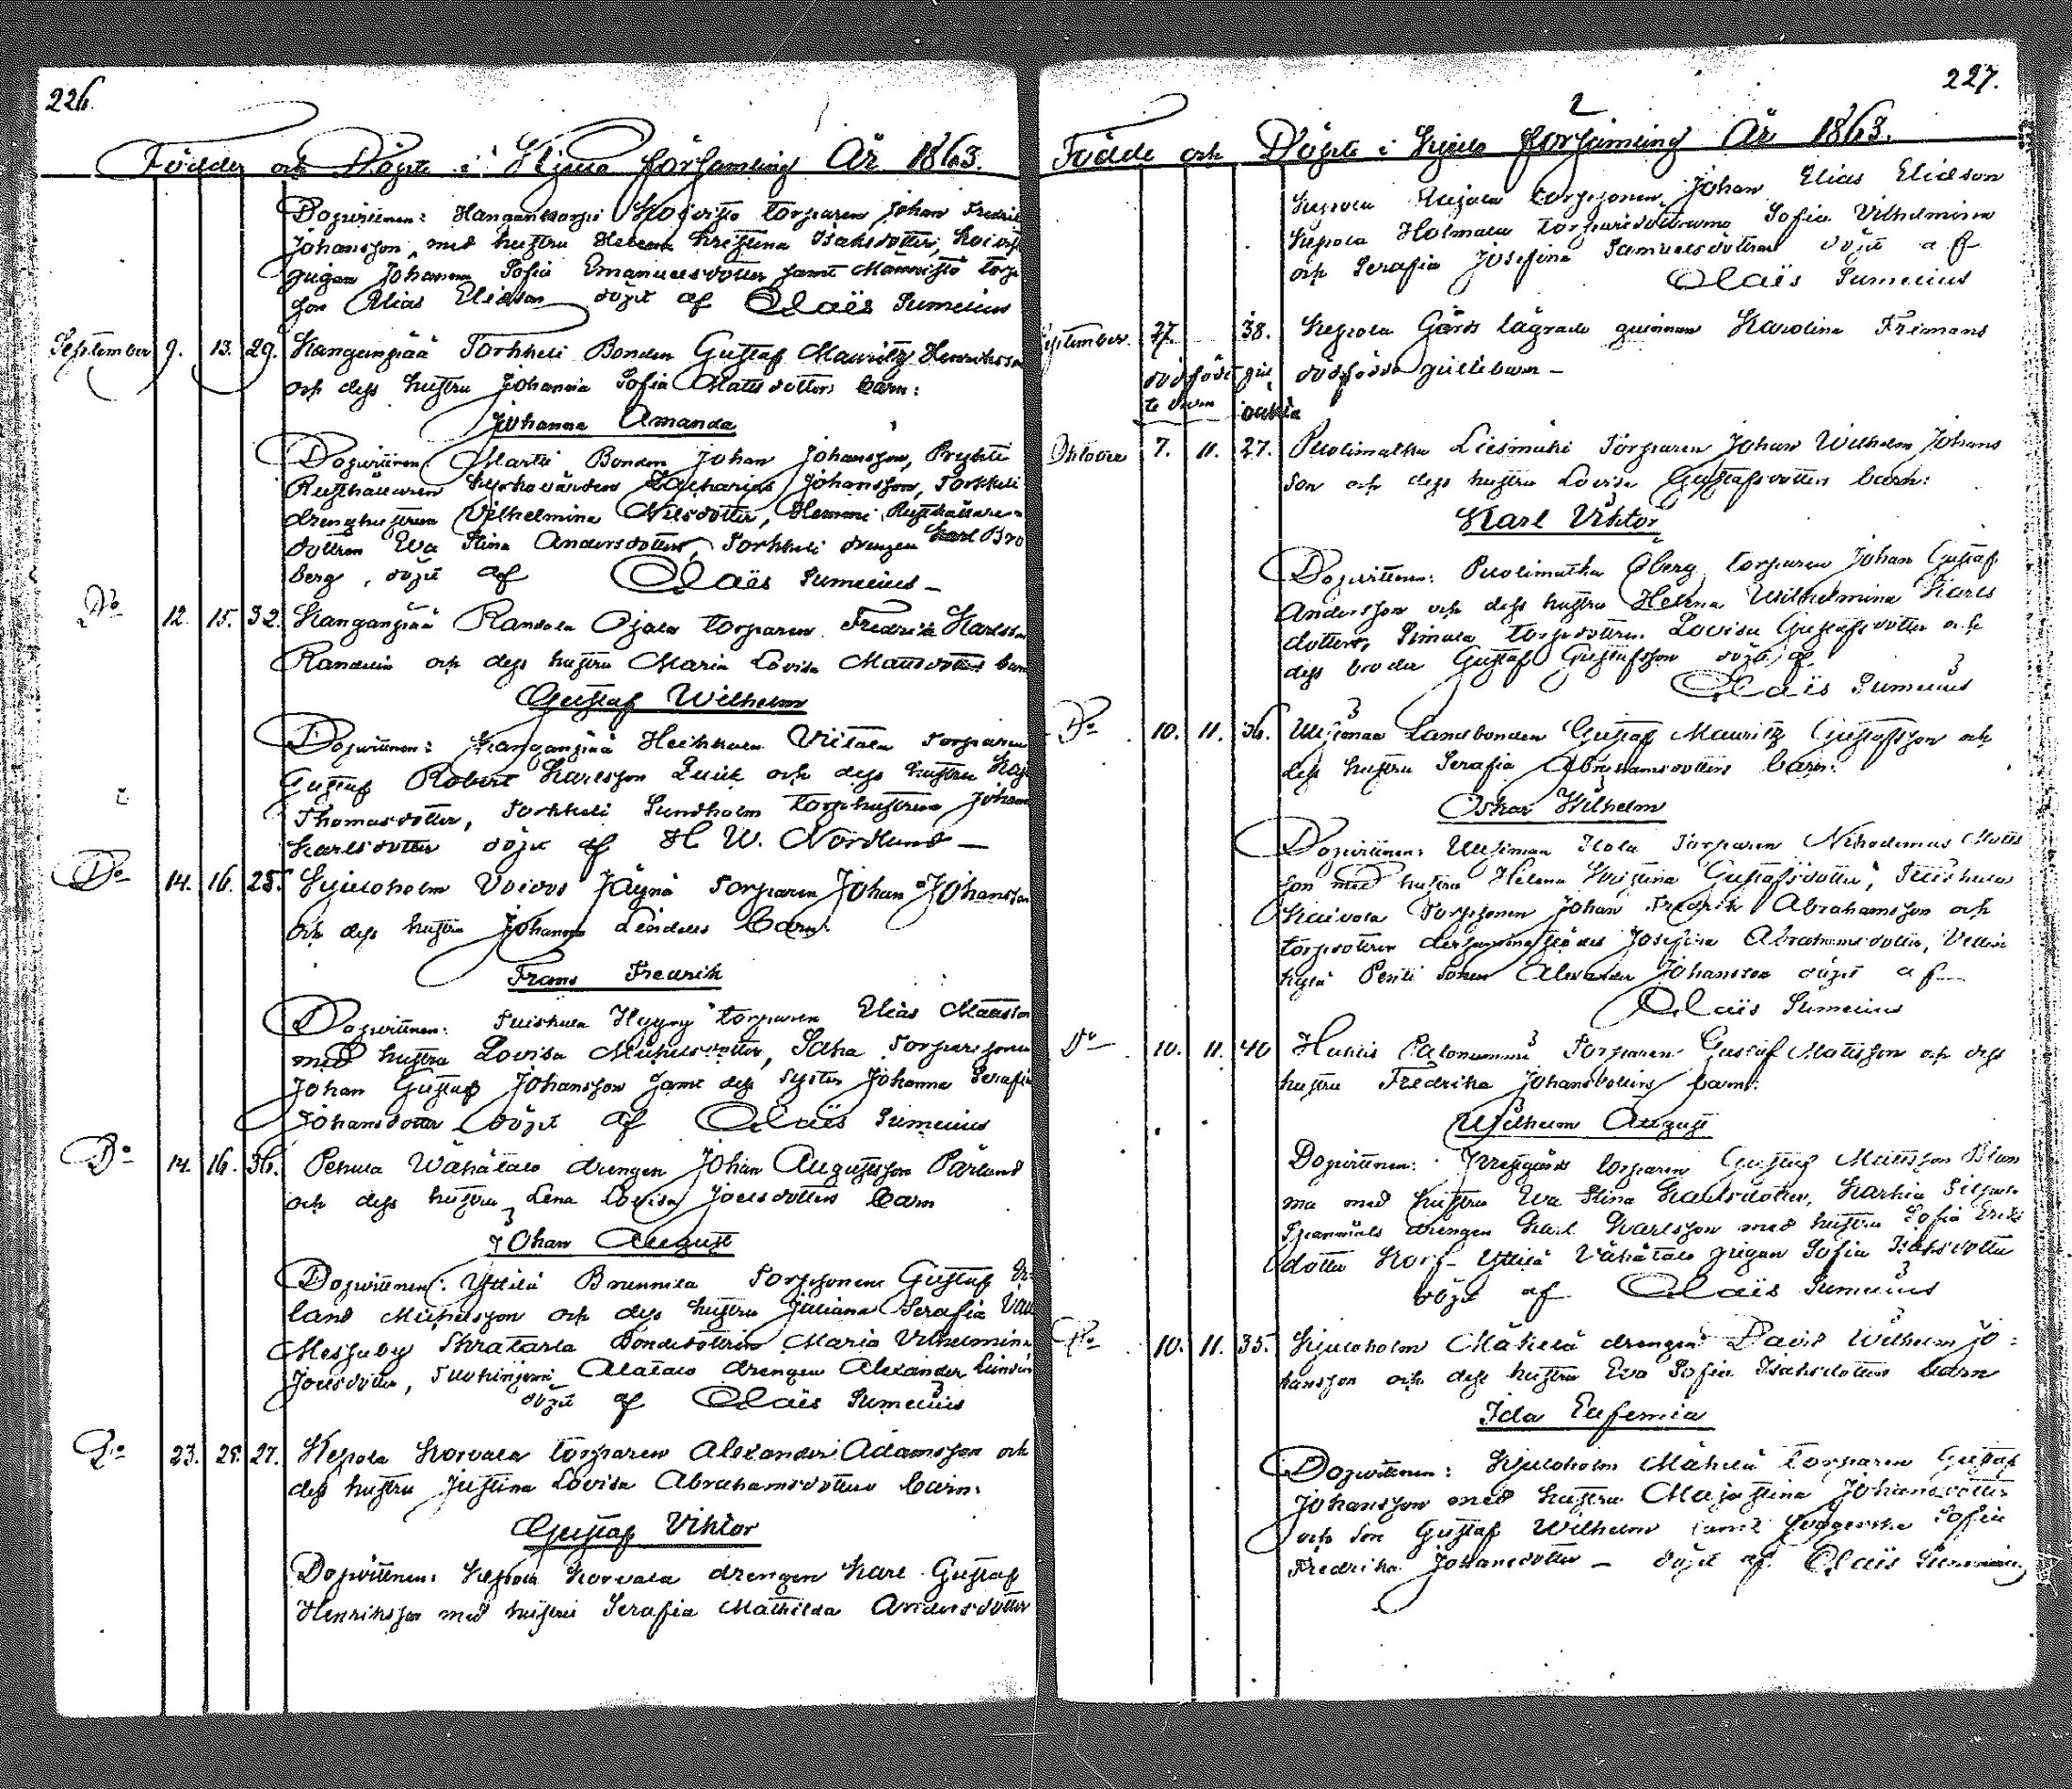 226.
Födde och Döpte i Kjulo församling År 1863.
Dopvittnen: Koivisto torparen Johan Fredrik
Johansson, med hustru Helena Kristina Isaksdotter,
pigan Johanna Sofia Emanuelsdotter samt Männistö
son Elias Eliasson döpt af Claës Sumelius
September 9. 13. 29. Kanganpää Torkkeli Bonden Gustaf Mauritz Henriksson
och dess hustru Johanna Sofia Matts dotters barn:
Johanna Amanda
Dopvittnen: Martti Bonden Johan Johansson, Prykti
Rusthållaren Kyrkovärden Zacharias Johansson, Torkkeli
drenghustrun Vilhelmina Nilsdotter, Hemmi Rusthållare
dottren Eva Stina Andersdotter, Torkkeli drengen Karl Bro
berg, döpt af Claës Sumelius –
Do 12. 15. 32. Kanganpää Randala Ojala torparen Fredrik Karlsson
Randelin och dess hustru Maria Lovisa Mattsdotters barn
Gustaf Wilhelm
Dopvittnen: Kanganpää Heikkola Vitala Torparen
Gustaf Robert Karlsson Quick och dess hustru
Thomasdotter, Torkkeli Sundholm torphustrun
Karlsdotter döpt af H W. Nordlund –
Do 14. 16. 28. Kjuloholm Voivos Jäynä Torparen Johan Johansson
och dess hustru Johanna Lindens barn:
Frans Fredrik
Dopvittnen: Suiskula Hyyry torparen Elias Mattsson
med hustru Lovisa Michelsdotter, Torparesonen
Johan Gustaf Johansson samt dess syster Johanna Serafia
Johansdotter döpt af Claës Sumelius
Do 14. 16. 36. Pehula Wähätalo drengen Johan Augustsson Pärlund
och dess hustru Lena Lovisa Joelsdotters barn
Johan August
Dopvittnen: Yttilä Brunnila Torpsonen Gustaf
land Michelsson och dess hustru Juliana Serafia
Messuby Skratarla Bondedottren Maria Vilhelmina
Joelsdotter, Alatalo drengen Alexander
döpt af Claës Sumelius
Do 23. 25. 27. Kepola Korvala torparen Alexander Adamsson och
dess hustru Justina Lovisa Abrahamsdotters barn:
Gustaf Viktor
Dopvittnen: Kepola Korvala drengen Karl Gustaf
Henriksson med hustru Serafia Mathilda Andersdotter
227.
Födde och Döpte i Kjulo församling År 1863.
Kepola torpsonen Johan Elias Eliasson
Kepola Holmala torparedöttrarna Sofia Vilhelmina
och Serafia Josefina Samuelsdöttrar döpt af
Claës Sumelius
September. 27. 38. Kepola Gårds lägrade qvinnan Karolina Frimans
dödfödt dödfödda gossebarn –
Oktober 7. 11. 27. Puolimatka Liesmäki Torparen Johan Wilhelm Johans
son och dess hustru Lovisa Gustafsdotters barn:
Karl Viktor
Dopvittnen: Puolimatka Öberg torparen Johan Gustaf
Andersson och dess hustru Helena Wilhelmina Karls
dotter, Simola torpdottren Lovisa Gustafsdotter och
dess broder Gustaf Gustafsson döpt af
Claës Sumelius
Do 10. 11. 36. Landbonden Gustaf Mauritz Gustafsson och
dess hustru Serafia Abrahamsdotters barn:
Oskar Wilhelm
Dopvittnen: Torparen Nikodemus Matts
son med hustru Helena Kristina Gustafsdotter,
Kaivola Torpsonen Johan Fredrik Abrahamsson och
torpdottren dersammastädes Josefina Abrahamsdotter,
Pentti sonen Alexander Johansson döpt af
Claës Sumelius
Do 10. 11. 40 Torparen Gustaf Matsson och dess
hustru Fredrika Johansdotters barn:
Wilhelm August
Dopvittnen: torparen Gustaf Mattsson Blom
ma med hustru Eva Stina Karlsdotter,
drengen Karl Karlsson med hustru Sofia Eriks
dotter Korf Yttilä Vähätalo pigan Sofia Isaksdotter
döpt af Claës Sumelius
Do 10. 11. 35. Kjuloholm Mäkelä drengen David Wilhelm Jo=
hansson och dess hustru Eva Sofia Isaksdotters barn
Ida Eufemia
Dopvittnen: Kjuloholm Mäkelä torparen Gustaf
Johansson med hustru Maja Stina Johansdotter
och son Gustaf Wilhelm samt Sofia
Fredrika Johansdotter – döpt af Claës Sumelius